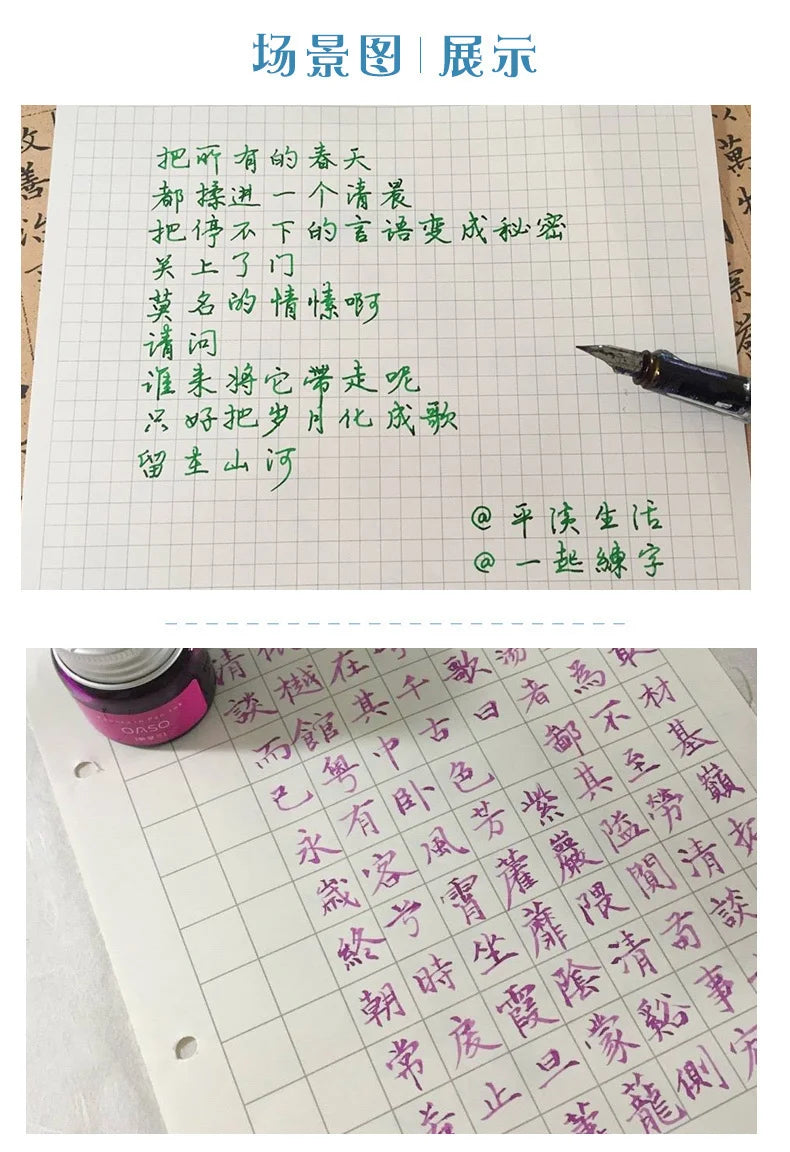 场景图 | 展示
把所有的春天
都揉进一个清晨
把停不下的言语变成秘密
关上了门
莫名的情愫啊
请问
谁来将它带走呢
只好把岁月化成歌
留在山河
@平淡生活
@一起練字
OASO
清
談樾在
而館其千歌
己粤中古曰者為
永有卧色 鄙不材
歲客風芳紫其至基
終兮霄蘿巖隘勞巔
朝時坐蘼隈閒清
常度霞陰清苟談
止旦蒙谿事
龍側